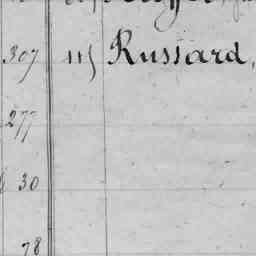 307 115 Russard,
277
30
78